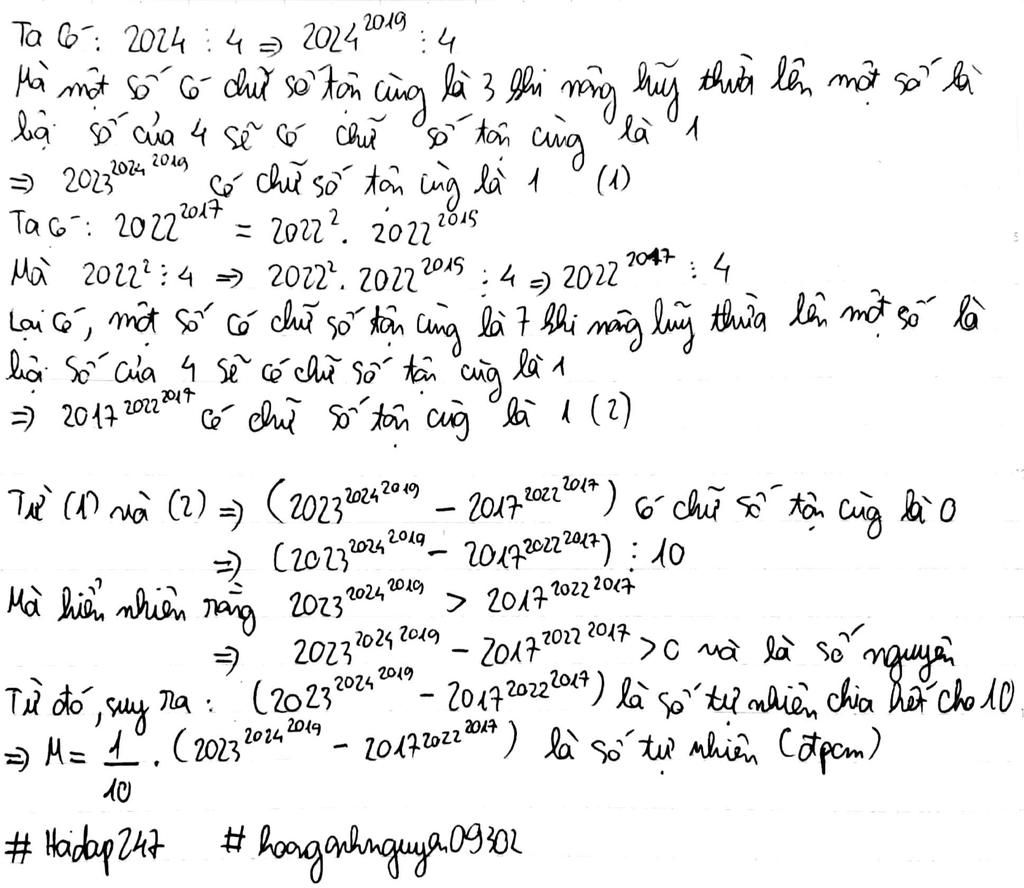 Ta có: 2024 ⋮ 4 ⇒ 2024^2019 ⋮ 4
Mà một số có chữ số tận cùng là 3 khi nâng lũy thừa lên một số là
bội số của 4 sẽ có chữ số tận cùng là 1
⇒ 2023^2024^2019 có chữ số tận cùng là 1 (1)
Ta có: 2022^2017 = 2022^2 . 2022^2015
Mà 2022^2 ⋮ 4 ⇒ 2022^2 . 2022^2015 ⋮ 4 ⇒ 2022^2017 ⋮ 4
Lại có, một số có chữ số tận cùng là 7 khi nâng lũy thừa lên một số là
bội số của 4 sẽ có chữ số tận cùng là 1
⇒ 2017^2022^2017 có chữ số tận cùng là 1 (2)
Từ (1) và (2) ⇒ (2023^2024^2019 - 2017^2022^2017) có chữ số tận cùng là 0
⇒ (2023^2024^2019 - 2017^2022^2017) ⋮ 10
Mà hiển nhiên rằng 2023^2024^2019 > 2017^2022^2017
⇒ 2023^2024^2019 - 2017^2022^2017 > 0 và là số nguyên
Từ đó, suy ra: (2023^2024^2019 - 2017^2022^2017) là số tự nhiên chia hết cho 10
⇒ M = 1/10 . (2023^2024^2019 - 2017^2022^2017) là số tự nhiên (đpcm)
#Hoidap247 #hoanganhnguyen09302